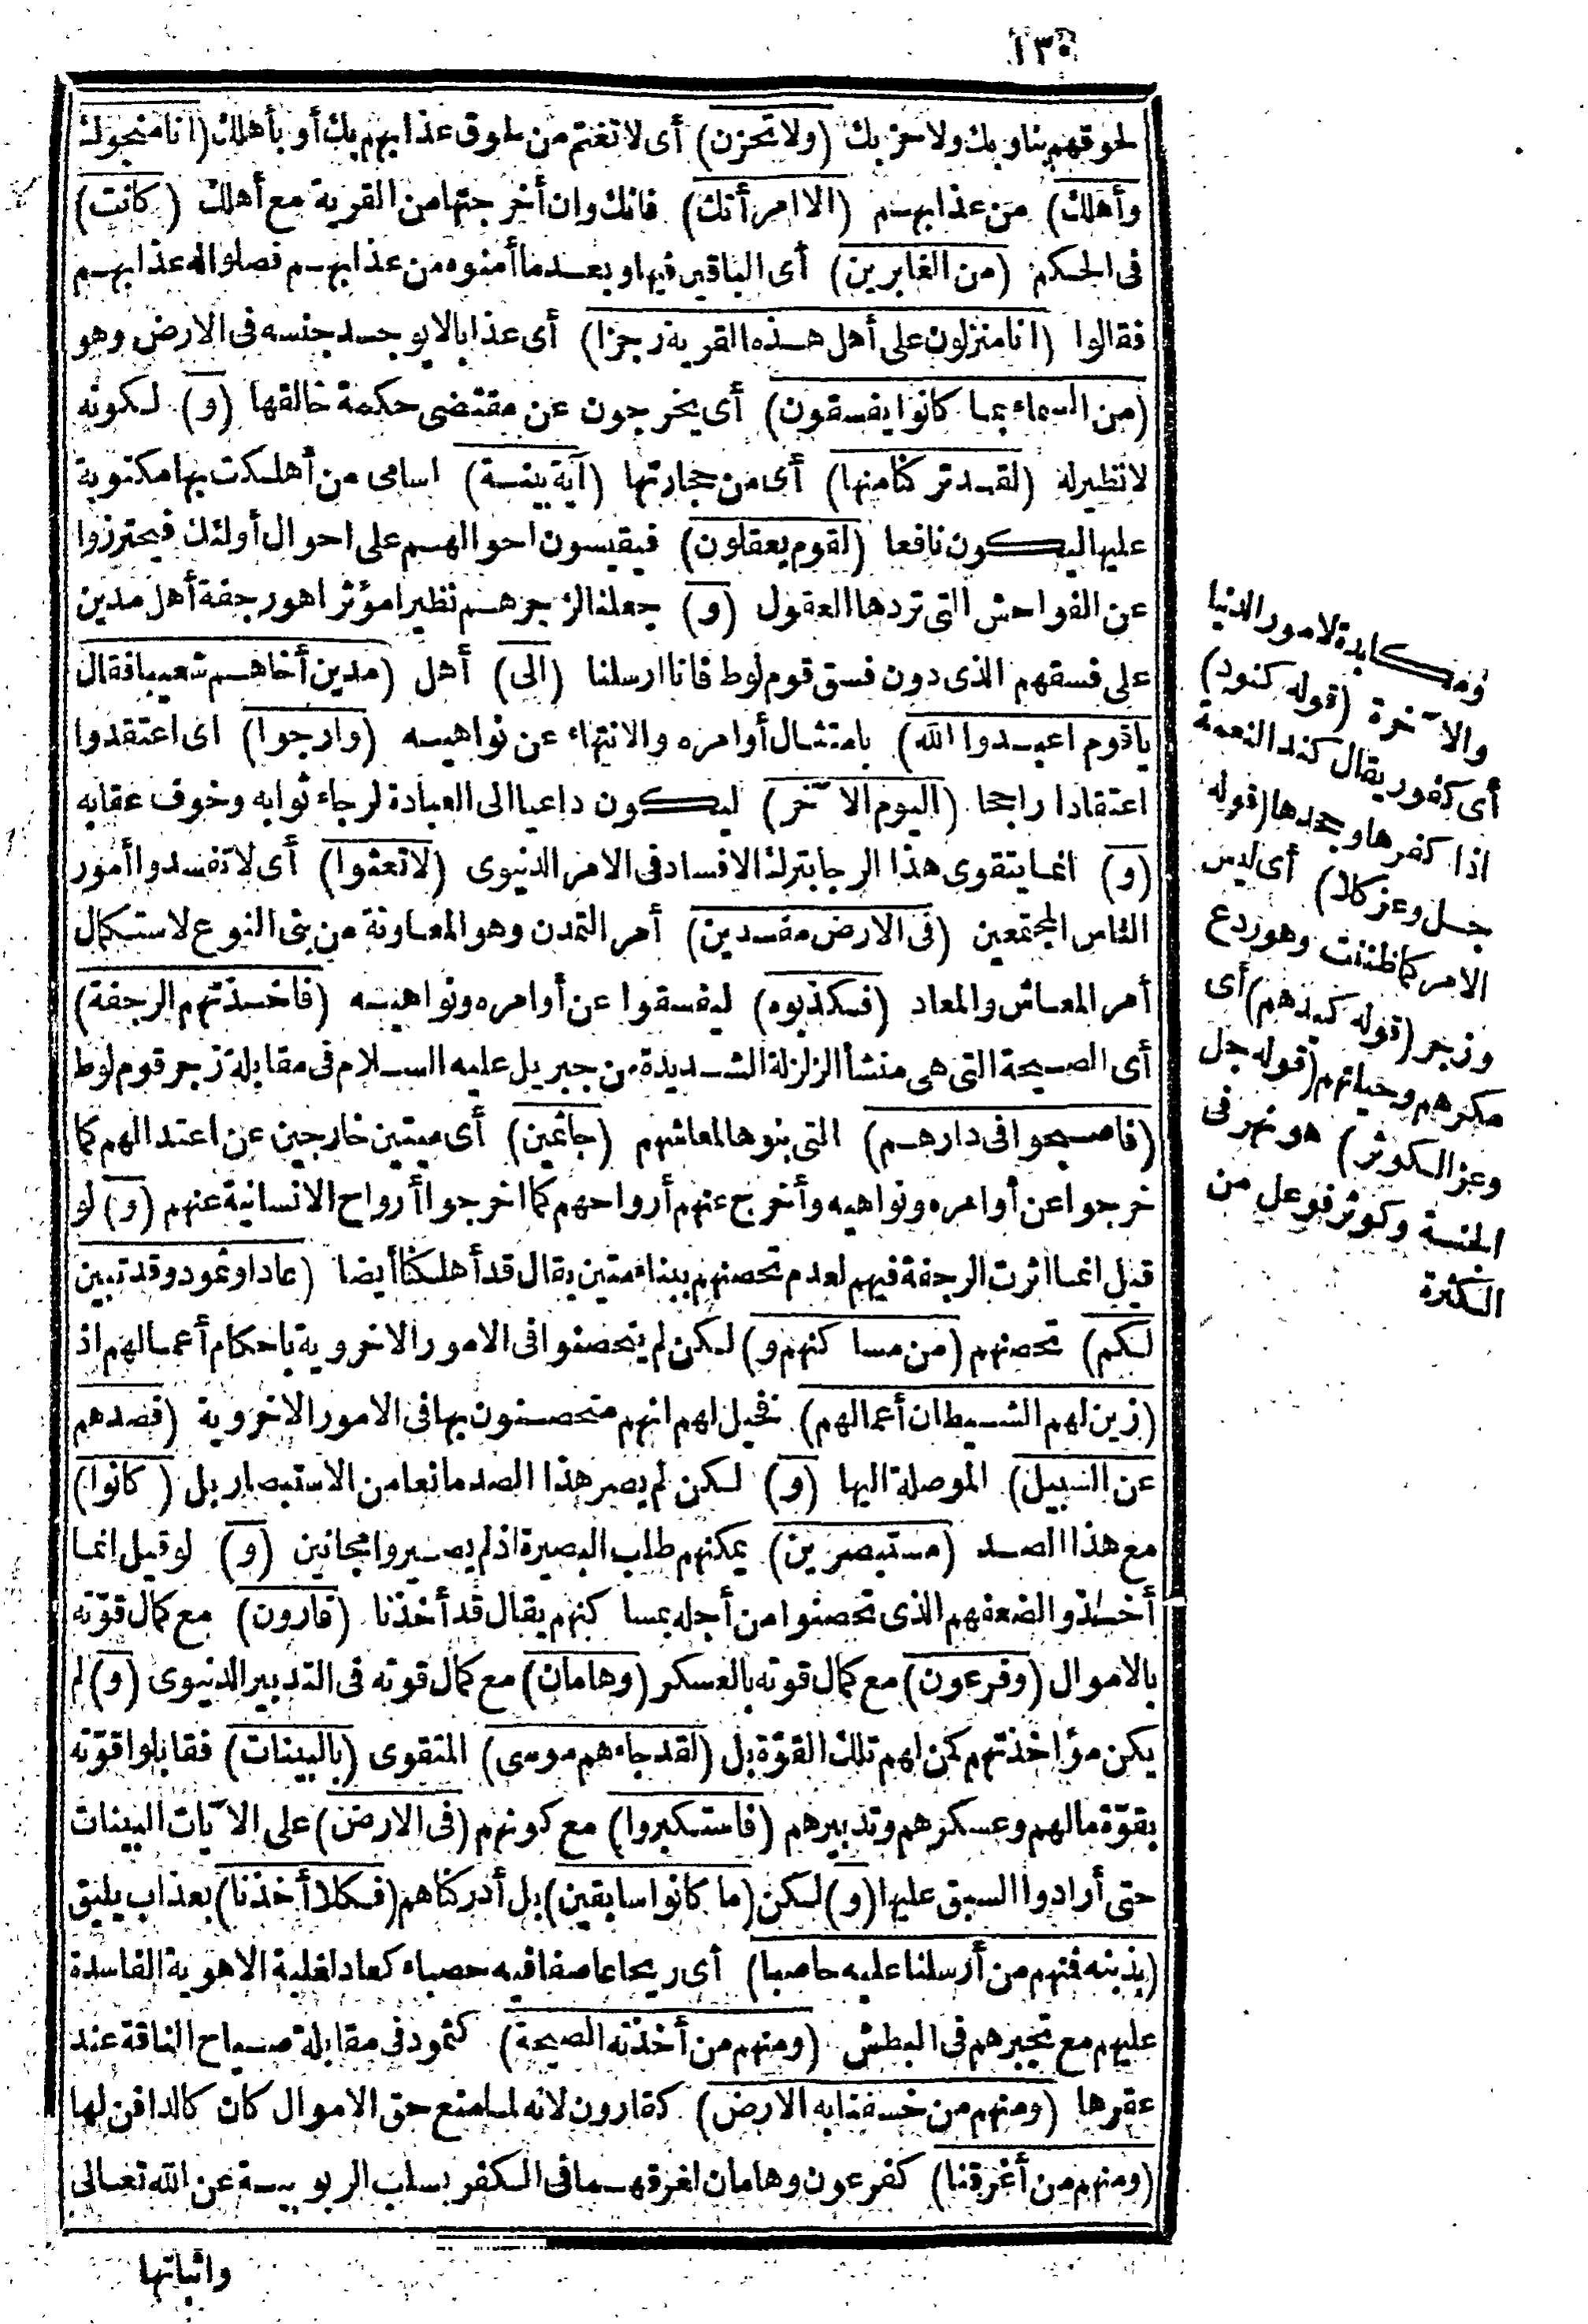 ١٣٠
لحوقهم بنا وبك ولا حزبك (ولا تحزن) أى لا تغتم من لحوق عذابهم بك أو بأهلك (انا منجوك
وأهلك) من عذابهم (الا امرأتك) فانك وان أخرجتها من القرية مع أهلك (كانت)
فى الحكم (من الغابرين) أى الباقين فيها وبعد ما أمنوه من عذابهم فصلوا له عذابهم
فقالوا (انا منزلون على أهل هذه القرية رجزا) أى عذابا لا يوجد جنسه فى الارض وهو
(من السماء بما كانوا يفسقون) أى يخرجون عن مقتضى حكمة خالقها (و) لكونه
لا نظير له (لقد تركنا منها) أى من حجارتها (آية بينة) اسامى من أهلكت بها مكتوبة
عليها ليكون نافعا (لقوم يعقلون) فيقيسون احوالهم على احوال أولئك فيحترزوا
عن الفواحش التى تردها العقول (و) جعلنا لزجرهم نظيرا مؤثرا هو رجفة أهل مدين
على فسقهم الذى دون فسق قوم لوط فانا ارسلنا (الى) أهل (مدين أخاهم شعيبا فقال
ياقوم اعبدوا الله) بامتثال أوامره والانتهاء عن نواهيه (وارجوا) اى اعتقدوا
اعتقادا راجحا (اليوم الآخر) ليكون داعيا الى العبادة لرجاء ثوابه وخوف عقابه
(و) انما يتقوى هذا الرجا بترك الافساد فى الامر الدنيوى (لا تعثوا) أى لا تفسدوا أمور
الناس المجتمعين (فى الارض مفسدين) أمر التمدن وهو المعاونة من بنى النوع لاستكمال
أمر المعاش والمعاد (فكذبوه) ليفسقوا عن أوامره ونواهيه (فاخذتهم الرجفة)
أى الصيحة التى هى منشأ الزلزلة الشديدة من جبريل عليه السلام فى مقابلة زجر قوم لوط
(فاصبحوا فى دارهم) التى بنوها لمعاشهم (جاثمين) أى ميتين خارجين عن اعتدالهم كما
خرجوا عن أوامره ونواهيه وأخرج عنهم أرواحهم كما اخرجوا أرواح الانسانية عنهم (و) لو
قيل انما اثرت الرجفة فيهم لعدم تحصنهم ببناء متين يقال قد أهلكنا أيضا (عادا وثمود وقد تبين
لكم) تحصنهم (من مساكنهم و) لكن لم يتحصنوا فى الامور الاخروية باحكام أعمالهم اذ
(زين لهم الشيطان أعمالهم) فخيل لهم انهم متحصنون بها فى الامور الاخروية (فصدهم
عن السبيل) الموصلة اليها (و) لكن لم يصر هذا الصد مانعا من الاستبصار بل (كانوا)
مع هذا الصد (مستبصرين) يمكنهم طلب البصيرة اذ لم يصيروا مجانين (و) لو قيل انما
أخذوا لضعفهم الذى تحصنوا من أجله بمساكنهم يقال قد أخذنا (قارون) مع كمال قوّته
بالاموال (وفرعون) مع كمال قوته بالعسكر (وهامان) مع كمال قوته فى التدبير الدنيوى (و) لم
يكن مؤاخذتهم كمن لهم تلك القوّة بل (لقد جاءهم موسى) المتقوى (بالبينات) فقابلوا قوّته
بقوّة مالهم وعسكرهم وتدبيرهم (فاستكبروا) مع كونهم (فى الارض) على الآيات البينات
حتى أرادوا السبق عليها (و) لكن (ما كانوا سابقين) بل أدركناهم (فكلا أخذنا) بعذاب يليق
(بذنبه فمنهم من أرسلنا عليه حاصبا) أى ريحا عاصفا فيه حصباء كعاد لغلبة الاهوية الفاسدة
عليهم مع تجبرهم فى البطش (ومنهم من أخذته الصيحة) كثمود فى مقابلة صياح الناقة عند
عقرها (ومنهم من خسفنا به الارض) كقارون لانه لما منع حق الاموال كان كالدافن لها
(ومنهم من أغرقنا) كفرعون وهامان لغرقهما فى الكفر بسلب الربوبية عن الله تعالى
واثباتها
ومكابدة لامور الدنيا
والآخرة (قوله كنود)
أى كفور يقال كند النعمة
اذا كفرها وجحدها (قوله
جل وعز كلا) أى ليس
الامر كما ظننت وهو ردع
وزجر (قوله كيدهم) أى
مكرهم وحيلتهم (قوله جل
وعز الكوثر) هو نهر فى
الجنة وكوثر فوعل من
الكثرة